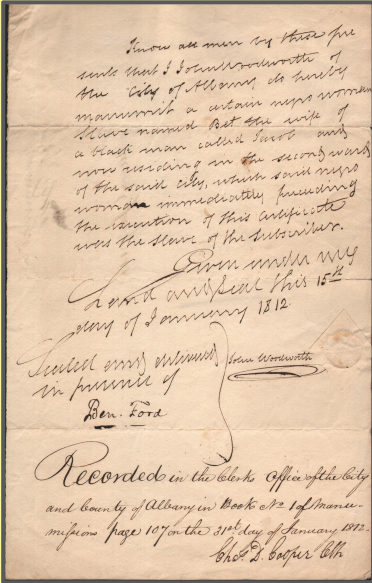 Know all men by these pre
sents that I John Woodworth of
the City of Albany do hereby
manumit a certain negro woman
Slave named Bet the wife of
a black man called Jacob and
now residing in the second ward
of the said city, which said negro
woman immediately preceding
the execution of this certificate
was the slave of the subscriber.
Given under my
hand and seal this 15th
day of January 1812
Sealed and delivered
in presence of
John Woodworth
Ben. Ford
Recorded in the Clerks Office of the City
and County of Albany in Book No 1 of Manu
missions page 107 on the 31st day of January 1812-
Chas D. Cooper Clk